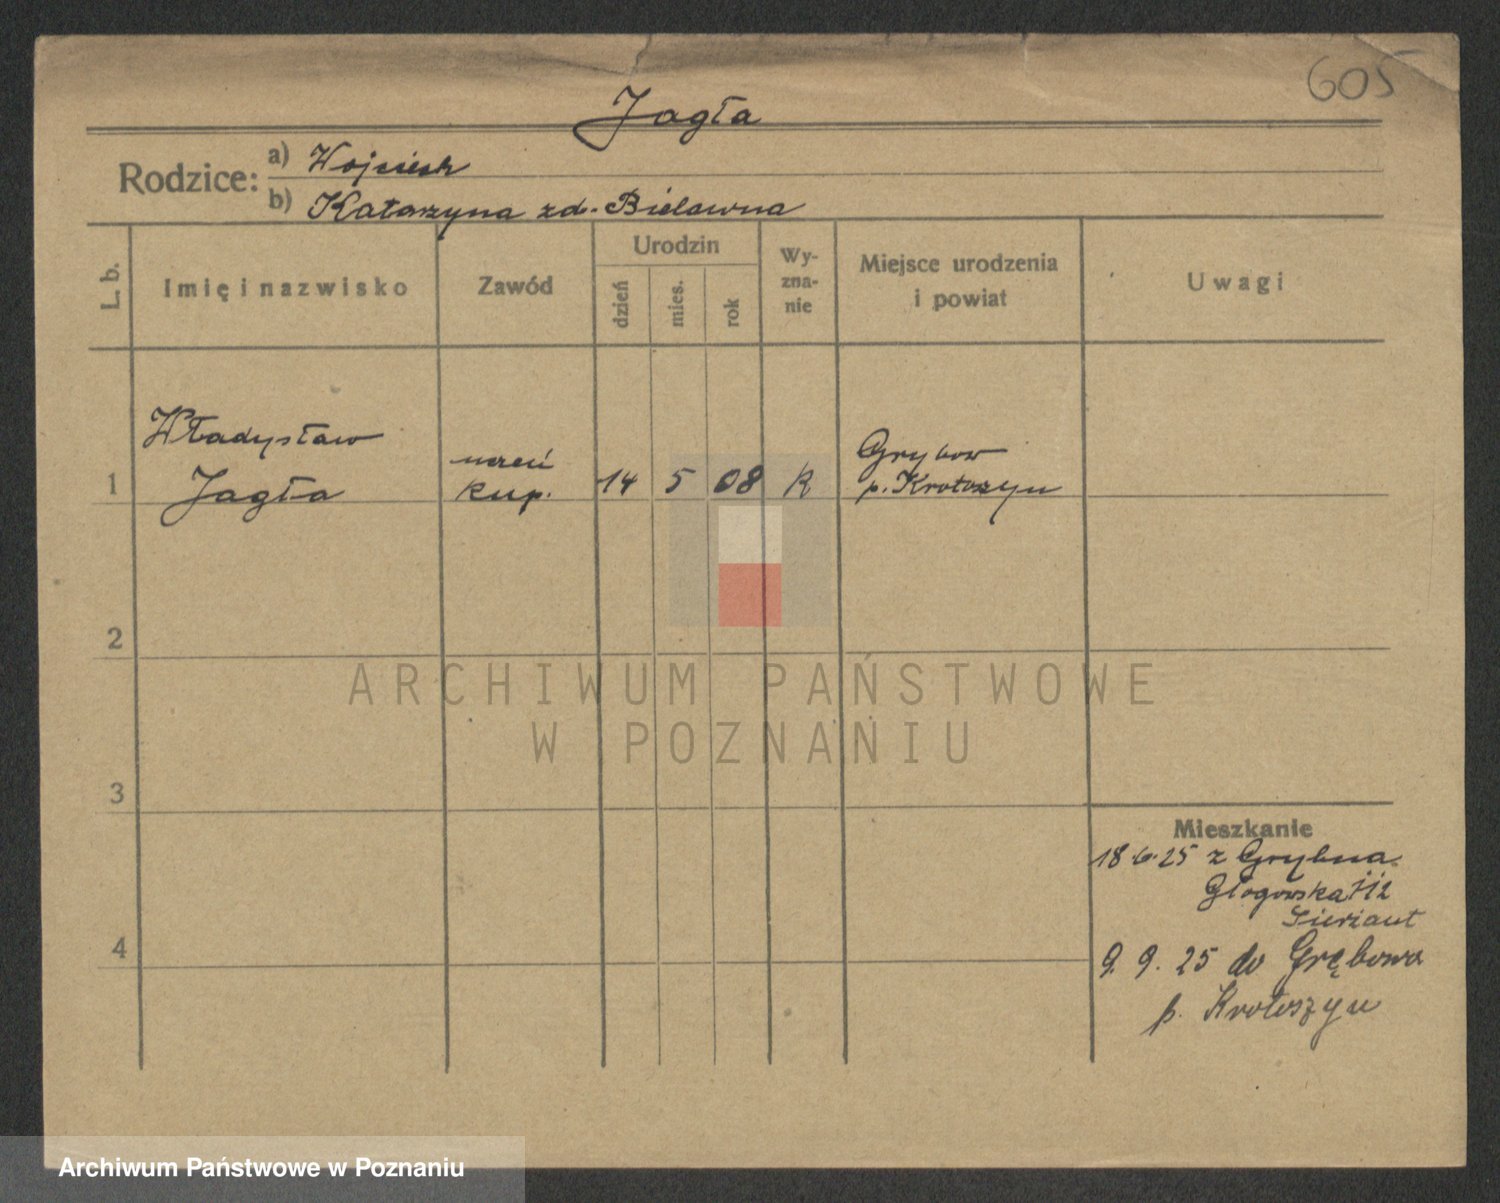 605
Jagła
Rodzice:
a) Wojciech
b) Katarzyna zd. Bielawna
L. b.
Imię i nazwisko
Zawód
Urodzin
dzień
mies.
rok
Wy-
zna-
nie
Miejsce urodzenia
i powiat
Uwagi
Władysław
1 Jagła
uczeń
kup.
14 5 08 k
Grybow
p. Krotoszyn
2
3
4
Mieszkanie
18.6.25 z Grybna
Głogowska 112
9. 9. 25 do Grębowa
p. Krotoszyn
ARCHIWUM PAŃSTWOWE
W POZNANIU
Archiwum Państwowe w Poznaniu